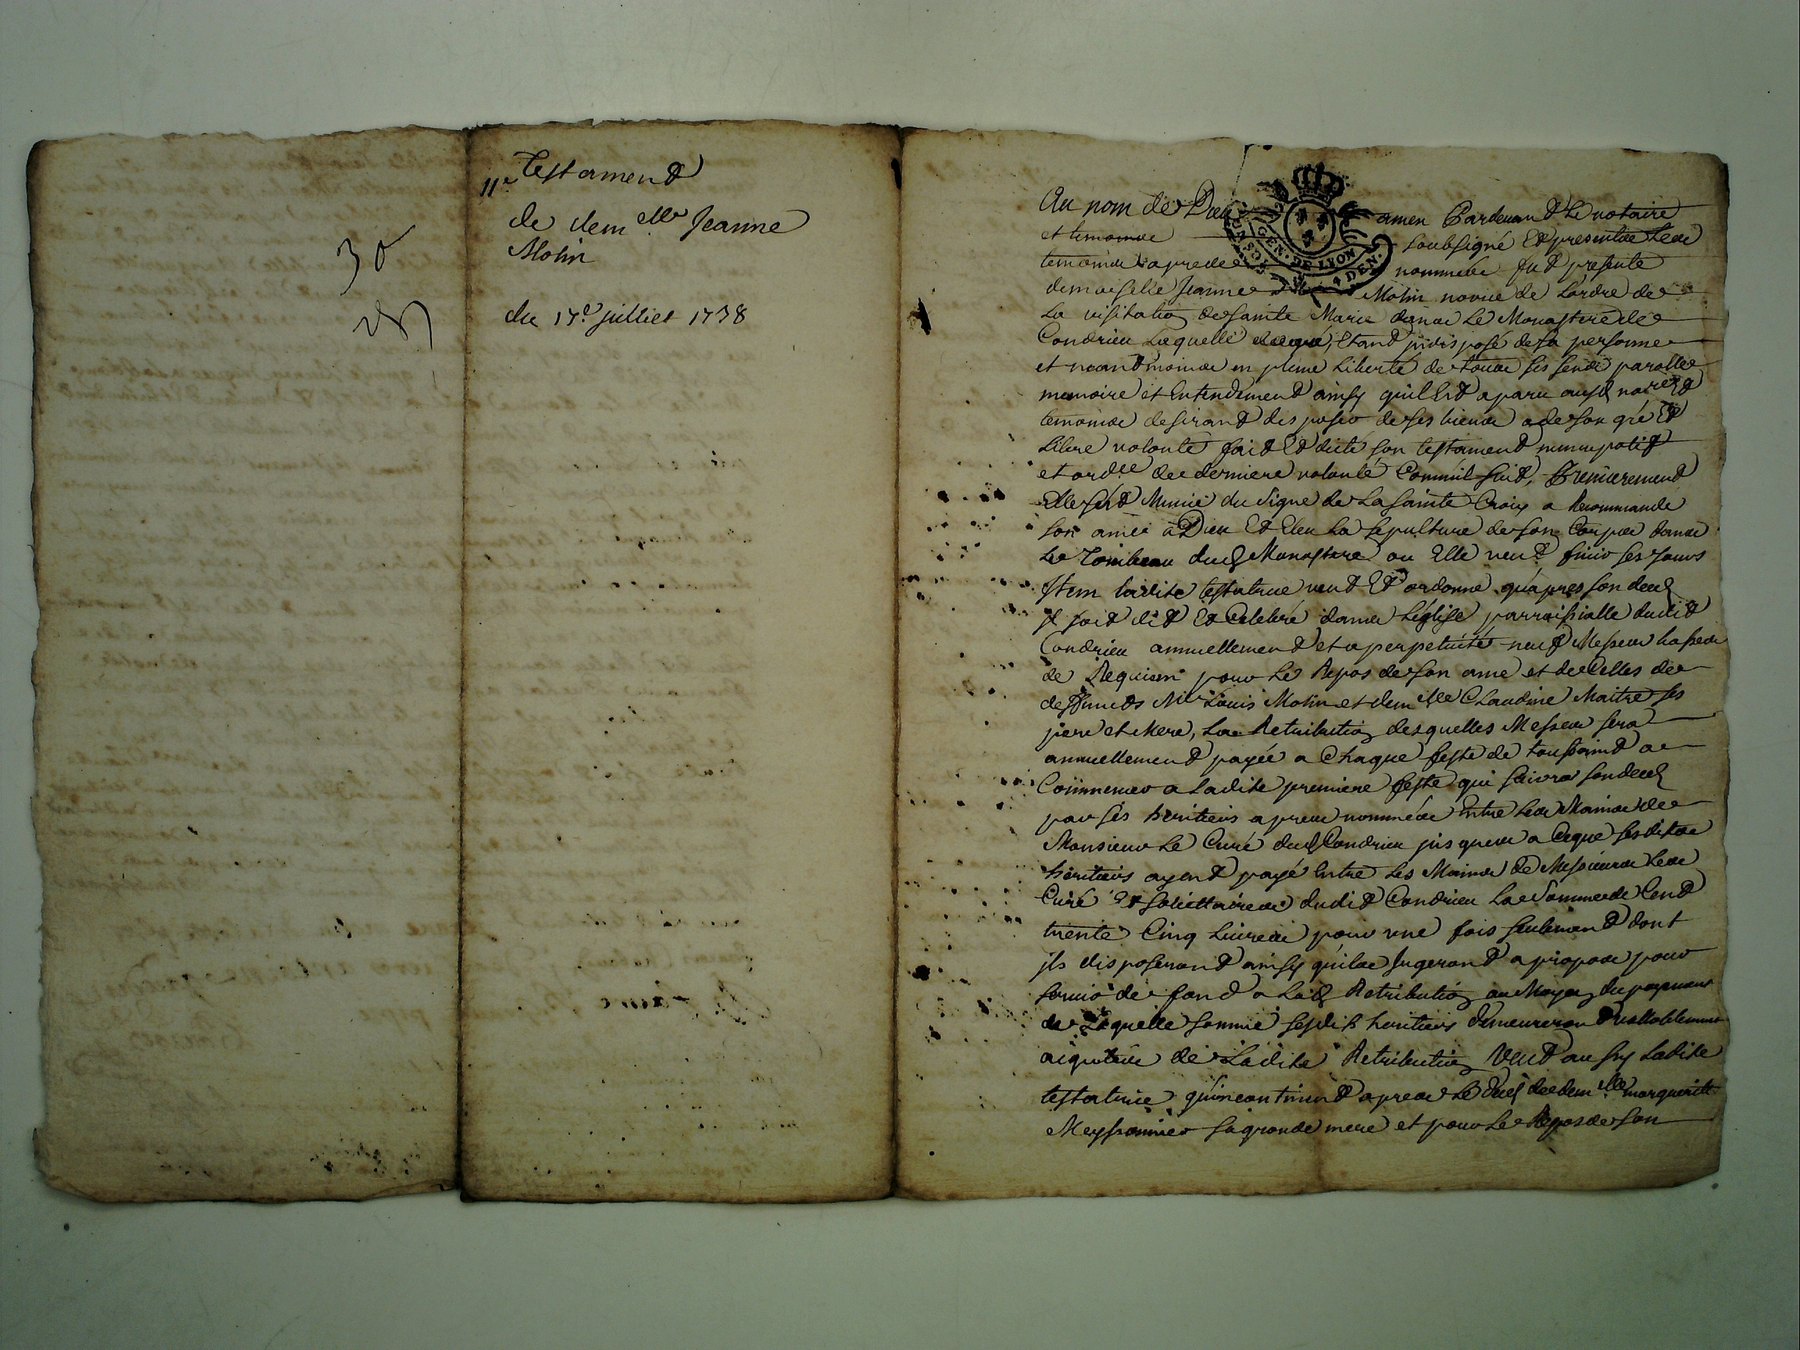 30
11e Testament
de demelle Jeanne
Molin
du 17e juillet 1738
GEN. DE LYON
DEN.
Au nom de Dieu amen Pardevant Le notaire
et temoins soubsigné Et presentes Les
temoins apres nommés fut presente
demoiselle Jeanne Molin novice de Lordre de
La visitation de sainte Marie dans Le Monastere de
Condrieu Laquelle Etant indisposé de sa personne
et neantmoins en pleine Liberté de tous ses sens parolle
memoire et Entendement ainsy quil Est aparu audt nore Et
temoins desirant disposer de ses biens a de son gré Et
Libre volonté fait Et dicté son testament nuncupatif
et ordce de derniere volonté Comme suit, Premierement
Elle sest Munie du signe de La sainte Croix a Recommandé
son ame a Dieu Et Eleu La sepulture de son Corps dans
Le Tombeau dudt Monastere ou Elle veut finir ses Jours
Item ladite testatrice veut Et ordonne quapres son deceds
Il soit dit Et Celebré dans Léglise parroissialle dudit
Condrieu annuellement et a perpetuité neuf Messes basses
de Requiem pour Le Repos de son ame et de Celles de
deffunts Mr Louis Molin et demelle Claudine Maitre ses
pere et Mere, La Retribution desquelles Messes sera
annuellement payée a Chaque feste de toussaint a
Commencer a Ladite premiere feste qui suivra son deceds
par ses heritiers apres nommés Entre Les Mains de
Monsieur Le Curé dudt Condrieu jusques a Ceque sesdits
heritiers ayent payé Entre Les Mains de Messieurs Les
Curé Et societtaires dudit Condrieu La Somme de Cent
trente Cinq Livres pour une fois seulement dont
ils disposeront ainsy quils Jugeront a propos pour
servir de fond a Ladt Retribution au Moyen du payement
de Laquelle somme sesdits heritiers demeureront vallablement
aquittés de Ladite Retribution Veut aussy Ladite
testatrice quincontinent apres Le deceds de demelle marguerite
Meyssonnier sa grande mere et pour Le Repos de son